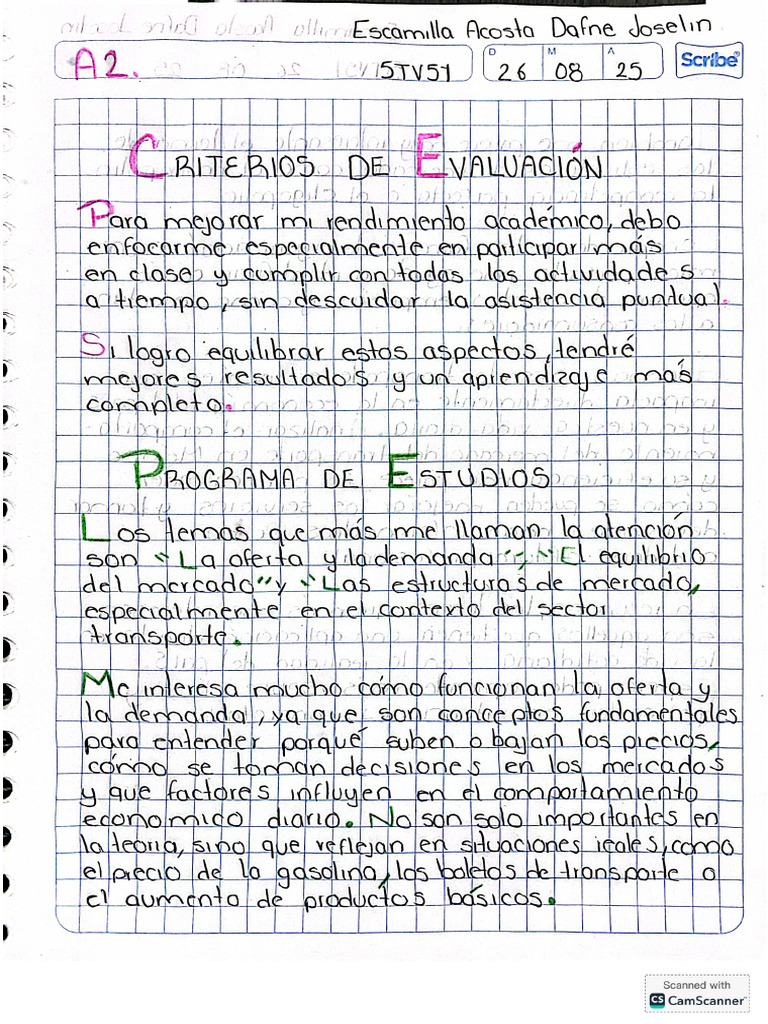 Escamilla Acosta Dafne Joselin
A2.
5TV51
D
26
M
08
A
25
Scribe
CRITERIOS DE EVALUACIÓN
Para mejorar mi rendimiento académico, debo
enfocarme especialmente en participar más
en clase y cumplir con todas las actividades
a tiempo, sin descuidar la asistencia puntual.
Si logro equilibrar estos aspectos, tendré
mejores resultados y un aprendizaje más
completo.
PROGRAMA DE ESTUDIOS
Los temas que más me llaman la atención
son "La oferta y la demanda", "El equilibrio
del mercado" y "Las estructuras de mercado,
especialmente en el contexto del sector
transporte.
Me interesa mucho cómo funcionan la oferta y
la demanda, ya que son conceptos fundamentales
para entender porqué suben o bajan los precios,
cómo se toman decisiones en los mercados
y que factores influyen en el comportamiento
economico diario. No son solo importantes en
la teoria, sino que reflejan en situaciones reales, como
el precio de la gasolina, los boletos de transporte o
el aumento de productos básicos.
Scanned with
CS CamScanner